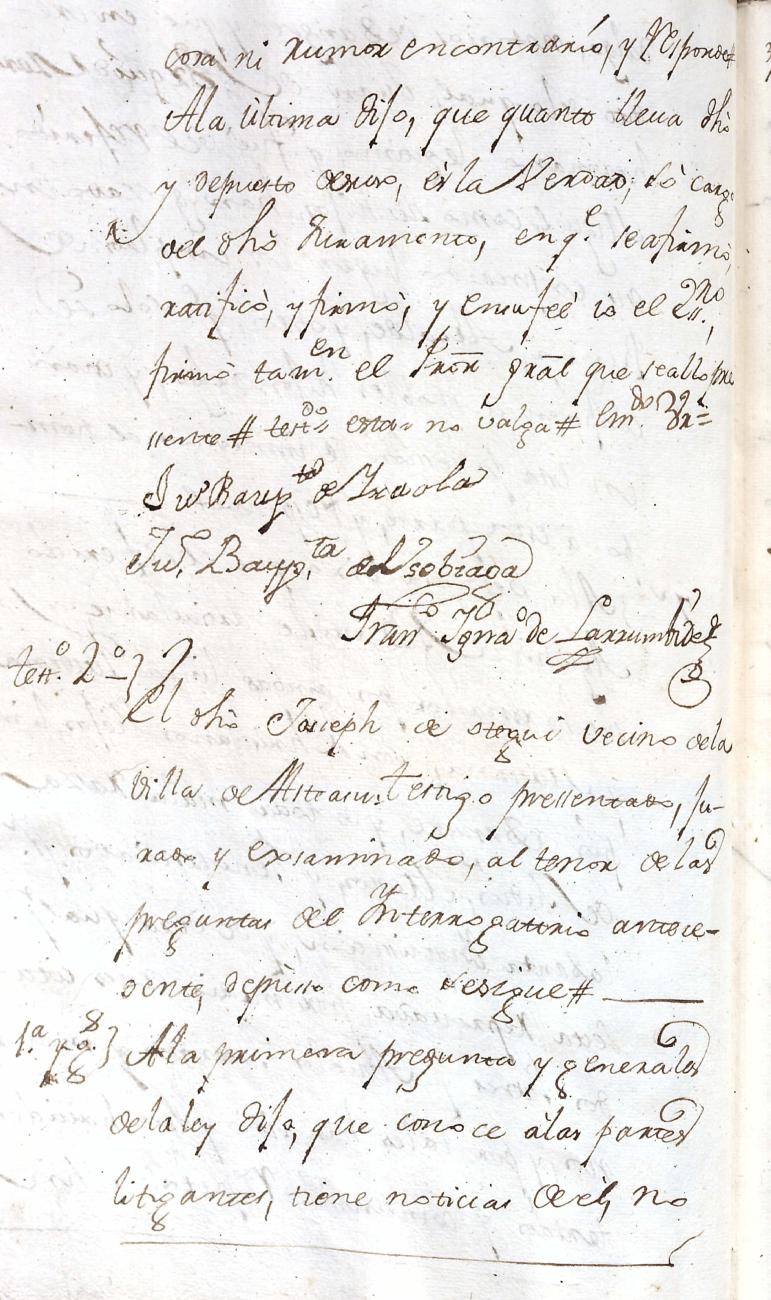 cosa ni rumor encontrario, y responde#
Ala ultima dijo, que quanto lleva dho
y depuesto desuso, es la Verdad, so cargo
del dho Juramento, en q.e se afirmò,
ratificò, y firmò, y en su feè io el
firmò tam.en el gral que se allo pre
ssente # test.do estas no valga #
Ju.o Baup.ta de Iraola
Ju.n Baup.ta de Lsobiaga
Fran.co Igna.o de Larrumbide
test.o 2.o }
El dho Joseph de otegui vecino dela
Villa de Asteasu testigo pressentado, ju-
rado y exsaminado, al tenor de las
preguntas del Ynterrogatorio antece-
dente, depusso como se sigue #
1.a pg. } Ala primera pregunta y generales
dela ley dijo, que conoce âlas partes
litigantes, tiene noticias de el, no